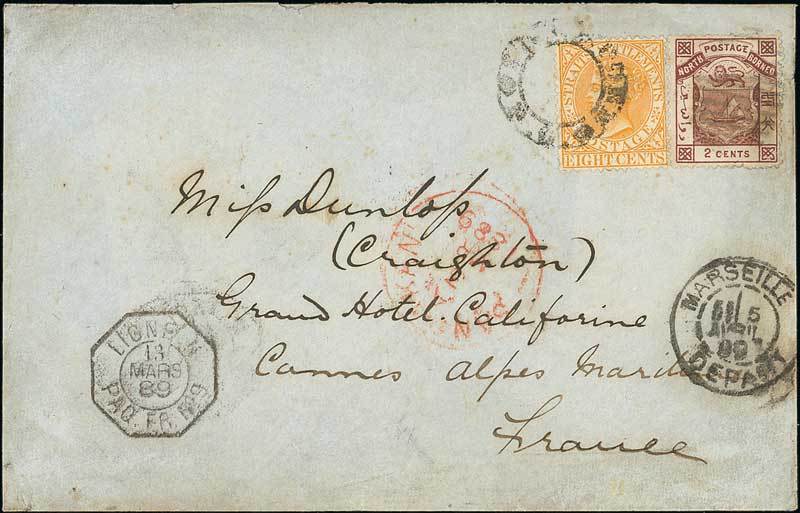 STRAITS SETTLEMENTS
POSTAGE
EIGHT CENTS
POSTAGE
NORTH BORNEO
2 CENTS
Miss Dunlop
(Creighton)
Grand Hotel. Califorine
Cannes Alpes Mariti
France
LIGNE N
13
MARS
89
PAQ. FR. Nº9
MARSEILLE
5
AVRIL
89
DEPART